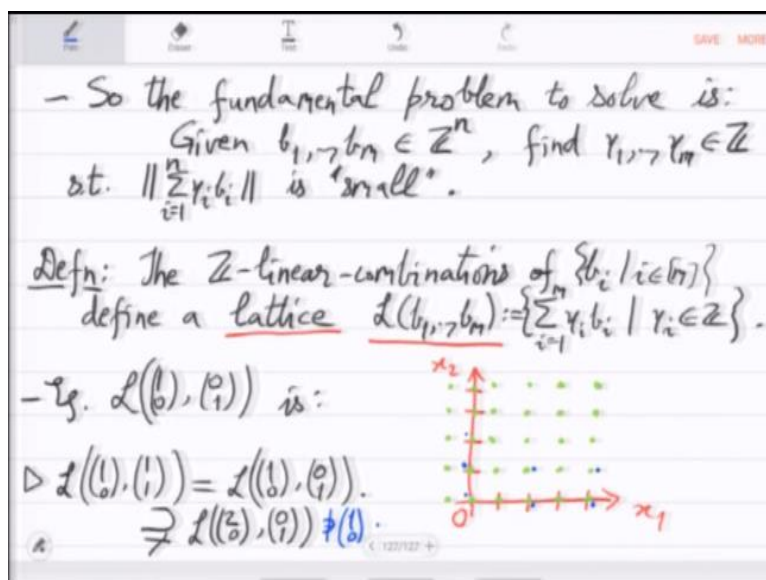 Pen Eraser Text Undo Redo SAVE MORE
– So the fundamental problem to solve is:
Given b_1,⇁b_m ∈ ℤ^n, find γ_1,⇁γ_m ∈ ℤ
s.t. ‖∑_{i=1}^{n} γ_i b_i‖ is "small".
Defn: The ℤ-linear-combinations of {b_i | i∈[m]}
define a lattice ℒ(b_1,⇁b_m) := {∑_{i=1}^{m} γ_i b_i | γ_i ∈ ℤ}.
– Eg. ℒ((1 0), (0 1)) is:
x_2
▷ ℒ((1 0), (1 1)) = ℒ((1 0), (0 1)).
⊋ ℒ((2 0), (0 1)) ∌ (1 0).
0 x_1
< 127/127 +